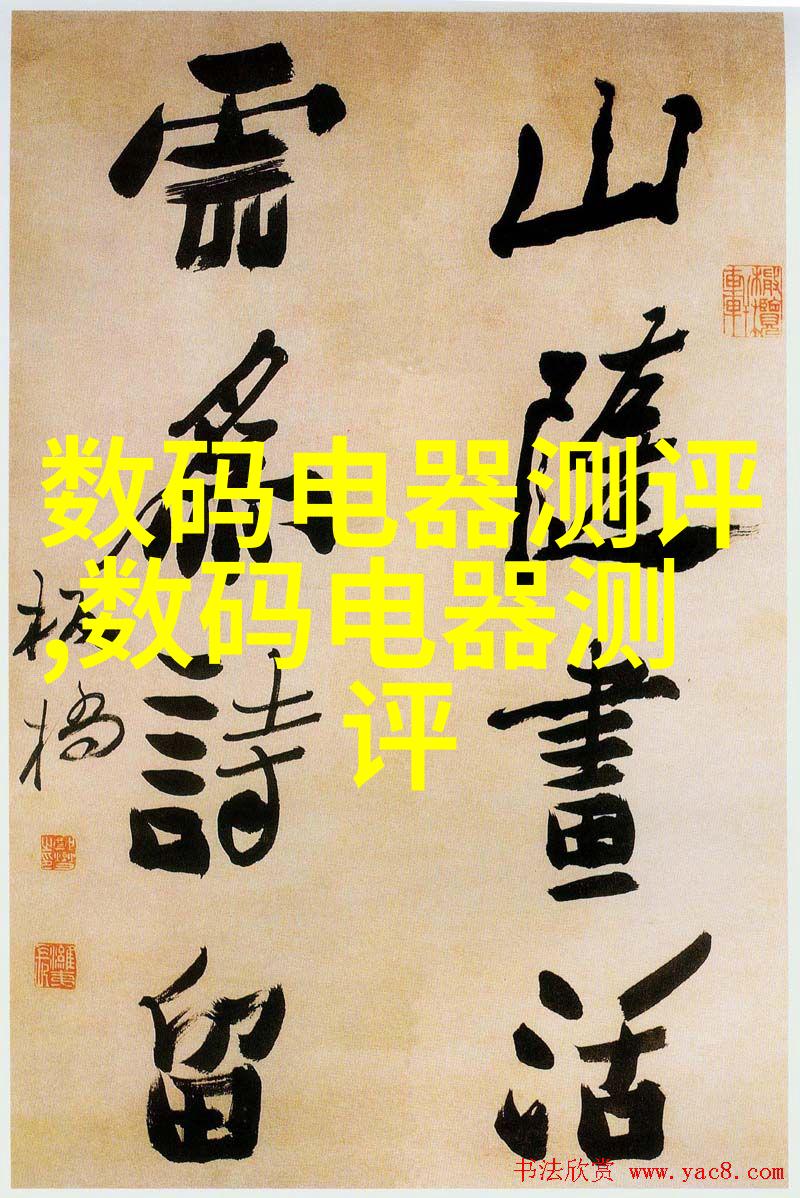 山隨畫活
雲為詩留
板橋
数码电器测评
,数码电器测
评
书法欣赏 www.yac8.com